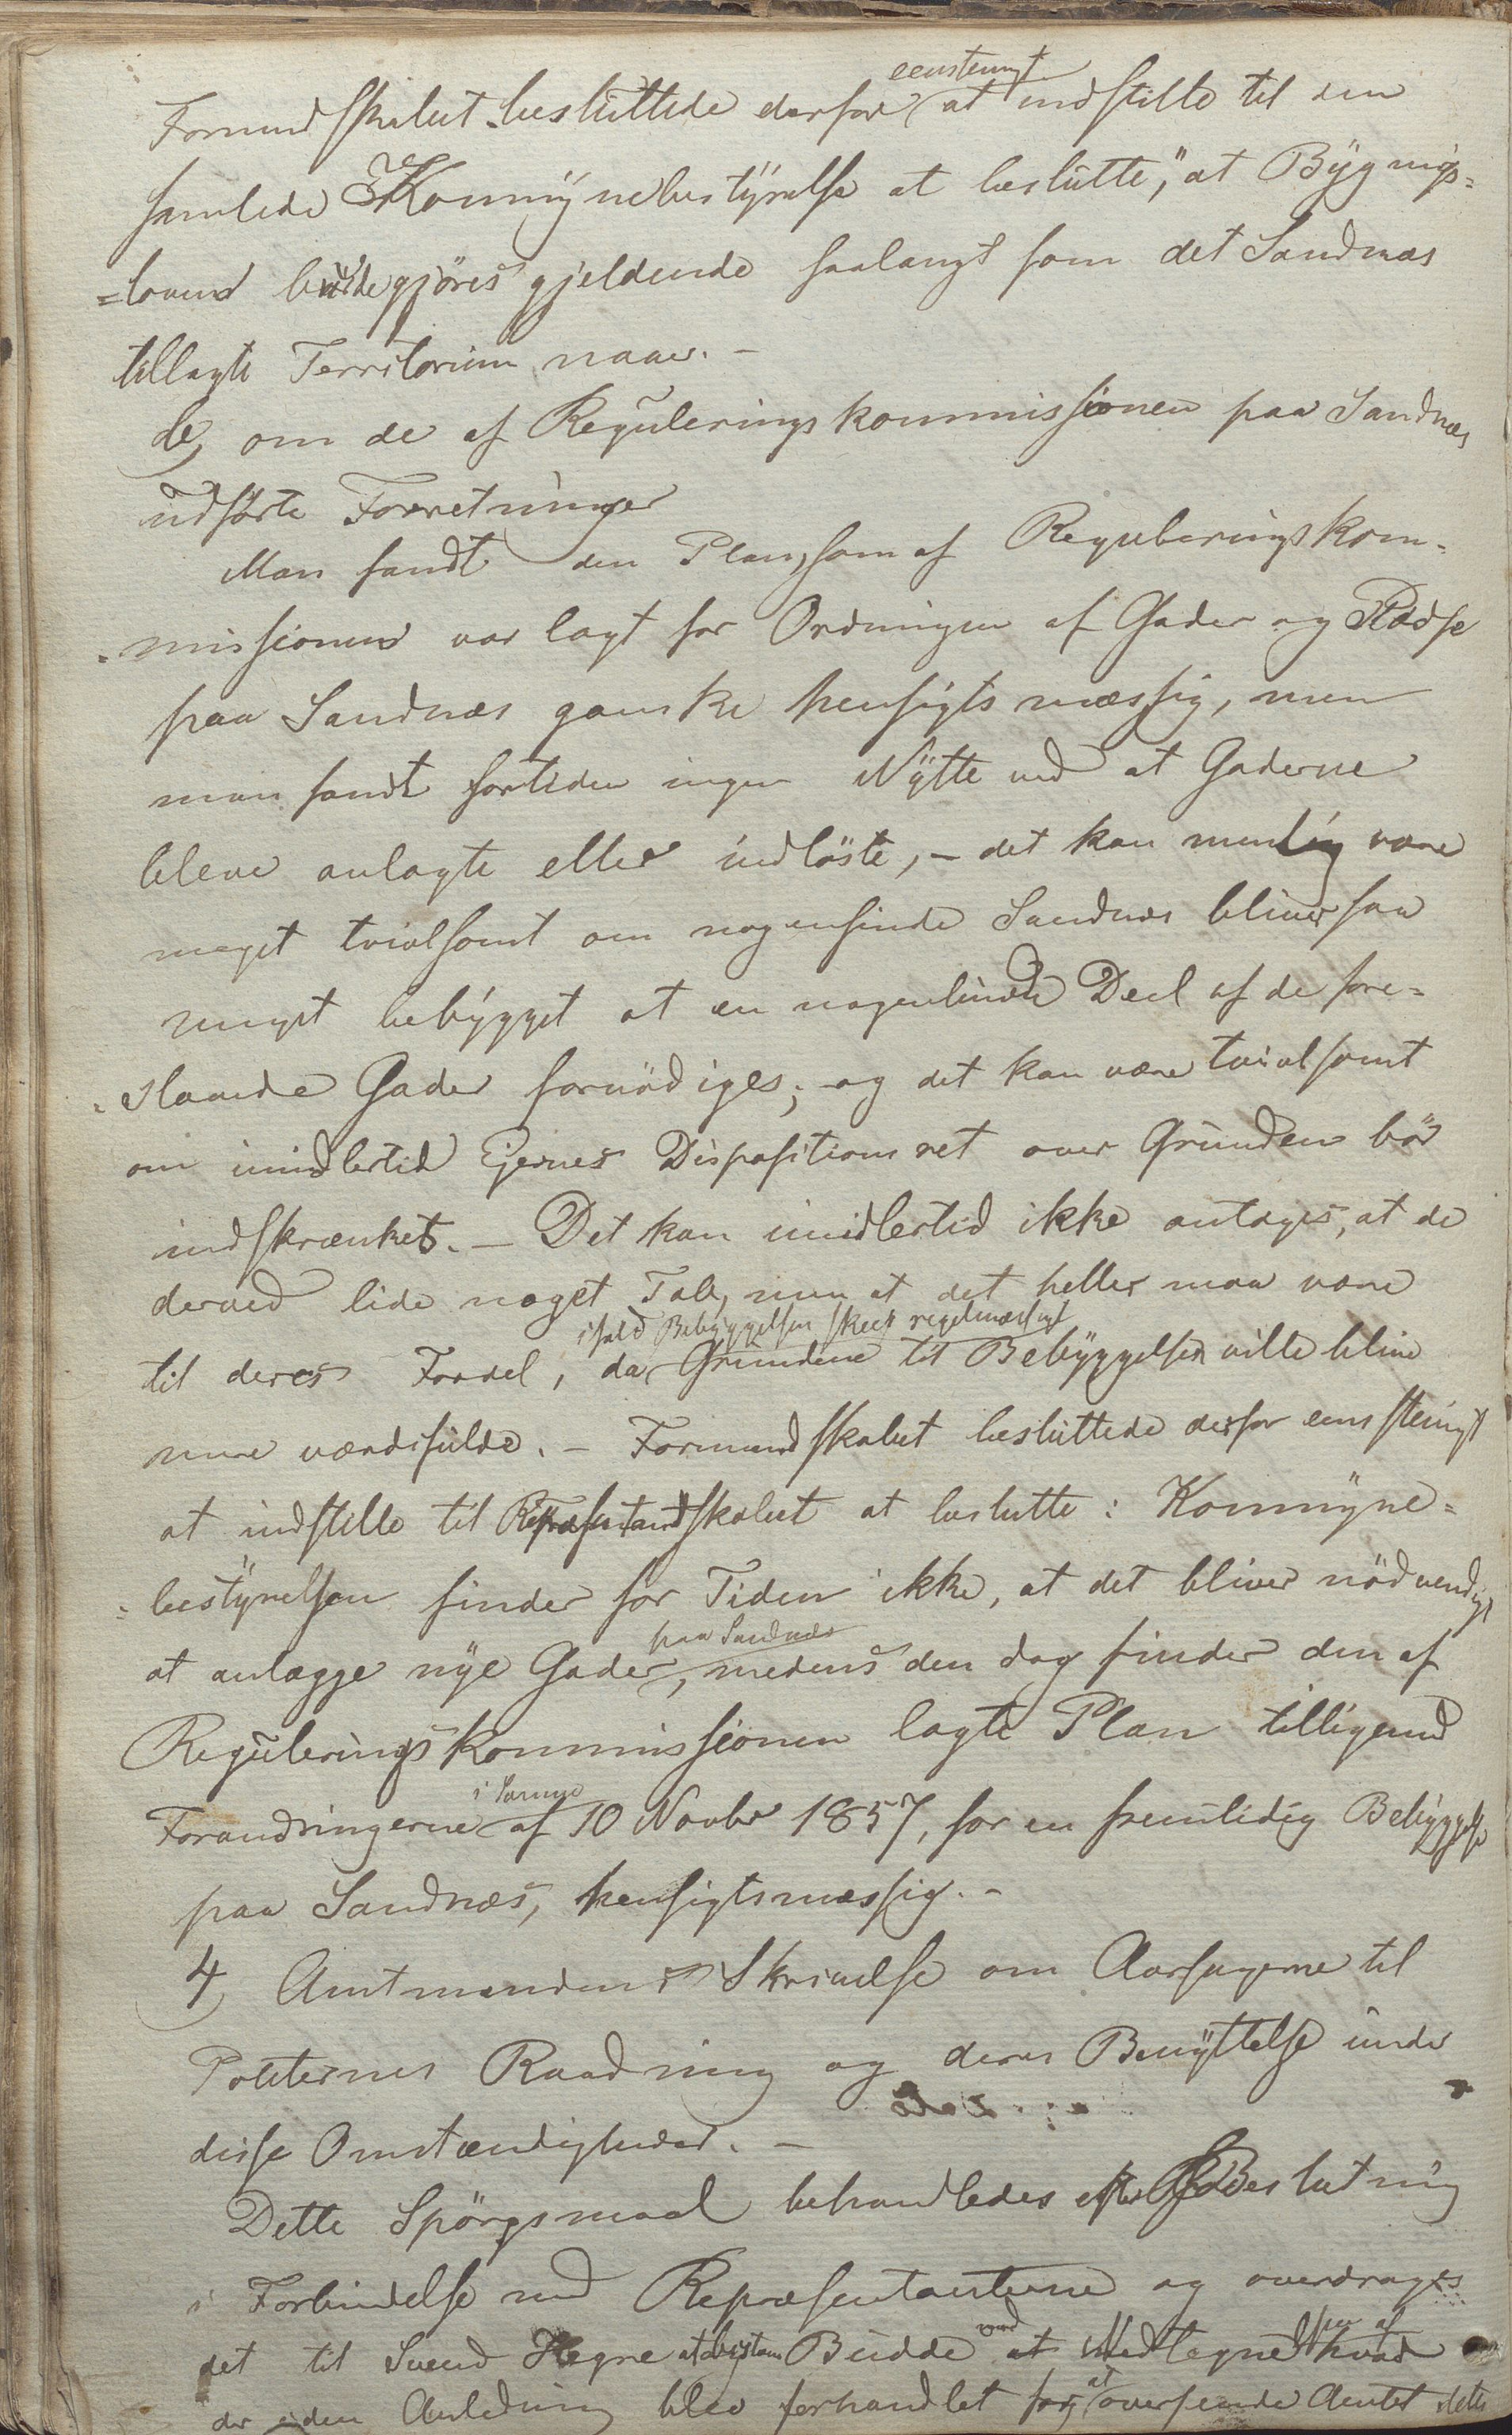 eenstemigt
Formandskabet besluttede derfor at indstille til den
samlede Kommunebestyrelse at beslutte, "at Bygnigs=
=loven burde gjöres gjeldende saalangt som det Sandnæs
tillagte Territorium naaer. -
de, om de af Reguleringskommissionen paa Sandnæs
udförte Forretninger
Man fandt den Plan, som af Reguleringskom-
-missionen var lagt for Ordningen af Gader og Pladse
paa Sandnæs ganske hensigtsmæssig, men
man fandt fortiden ingen Nytte ved at Gaderne
bleve anlagte eller indlöste, - det kan nemlig være
meget tvivlsomt om nogensinde Sandnæs bliver saa
meget bebygget at en nogenlunde Deel af de fore=
=slaaede Gader fornödiges; og det kan være tvivlsomt
om imidlertid Ejernes Dispositionsret over Grunden bör
indskrænkes. - Det kan imidlertid ikke antages, at de
derved lide noget Tab, men at det heller maa være
ifald Bebyggelsen skeer regelmæssigt
til deres Fordel, da Grundene til Bebyggelsen ville blive
mere værdifulde. - Formandskabet besluttede derfor eenstemigt
at indstille til Repræsentantskabet at beslutte: Kommune=
=bestyrelsen finder for Tiden ikke, at det bliver nödvendigt
paa Sandnæs
at anlægge nye Gader, medens den dog finder den af
Reguleringskommissionen lagte Plan tilligemed
i Samme
Forandringerne af 10 Novbr 1857, for en fremtidig Bebyggelse
paa Sandnæs, hensigtsmæssig. -
4, Amtmandens Skrivelse om Aarsagerne til
Poteternes Raadning og deres Benyttelse under
disse Omstændigheder. -
Dette Spörgsmaal behandledes efter Beslutning
i Forbindelse med Repræsentanterne og overdrages
det til Svend Hegre at bistaae Budde med at Nedtegne hvad
der i den Anledning blev forhandlet for at oversende Amtet dette